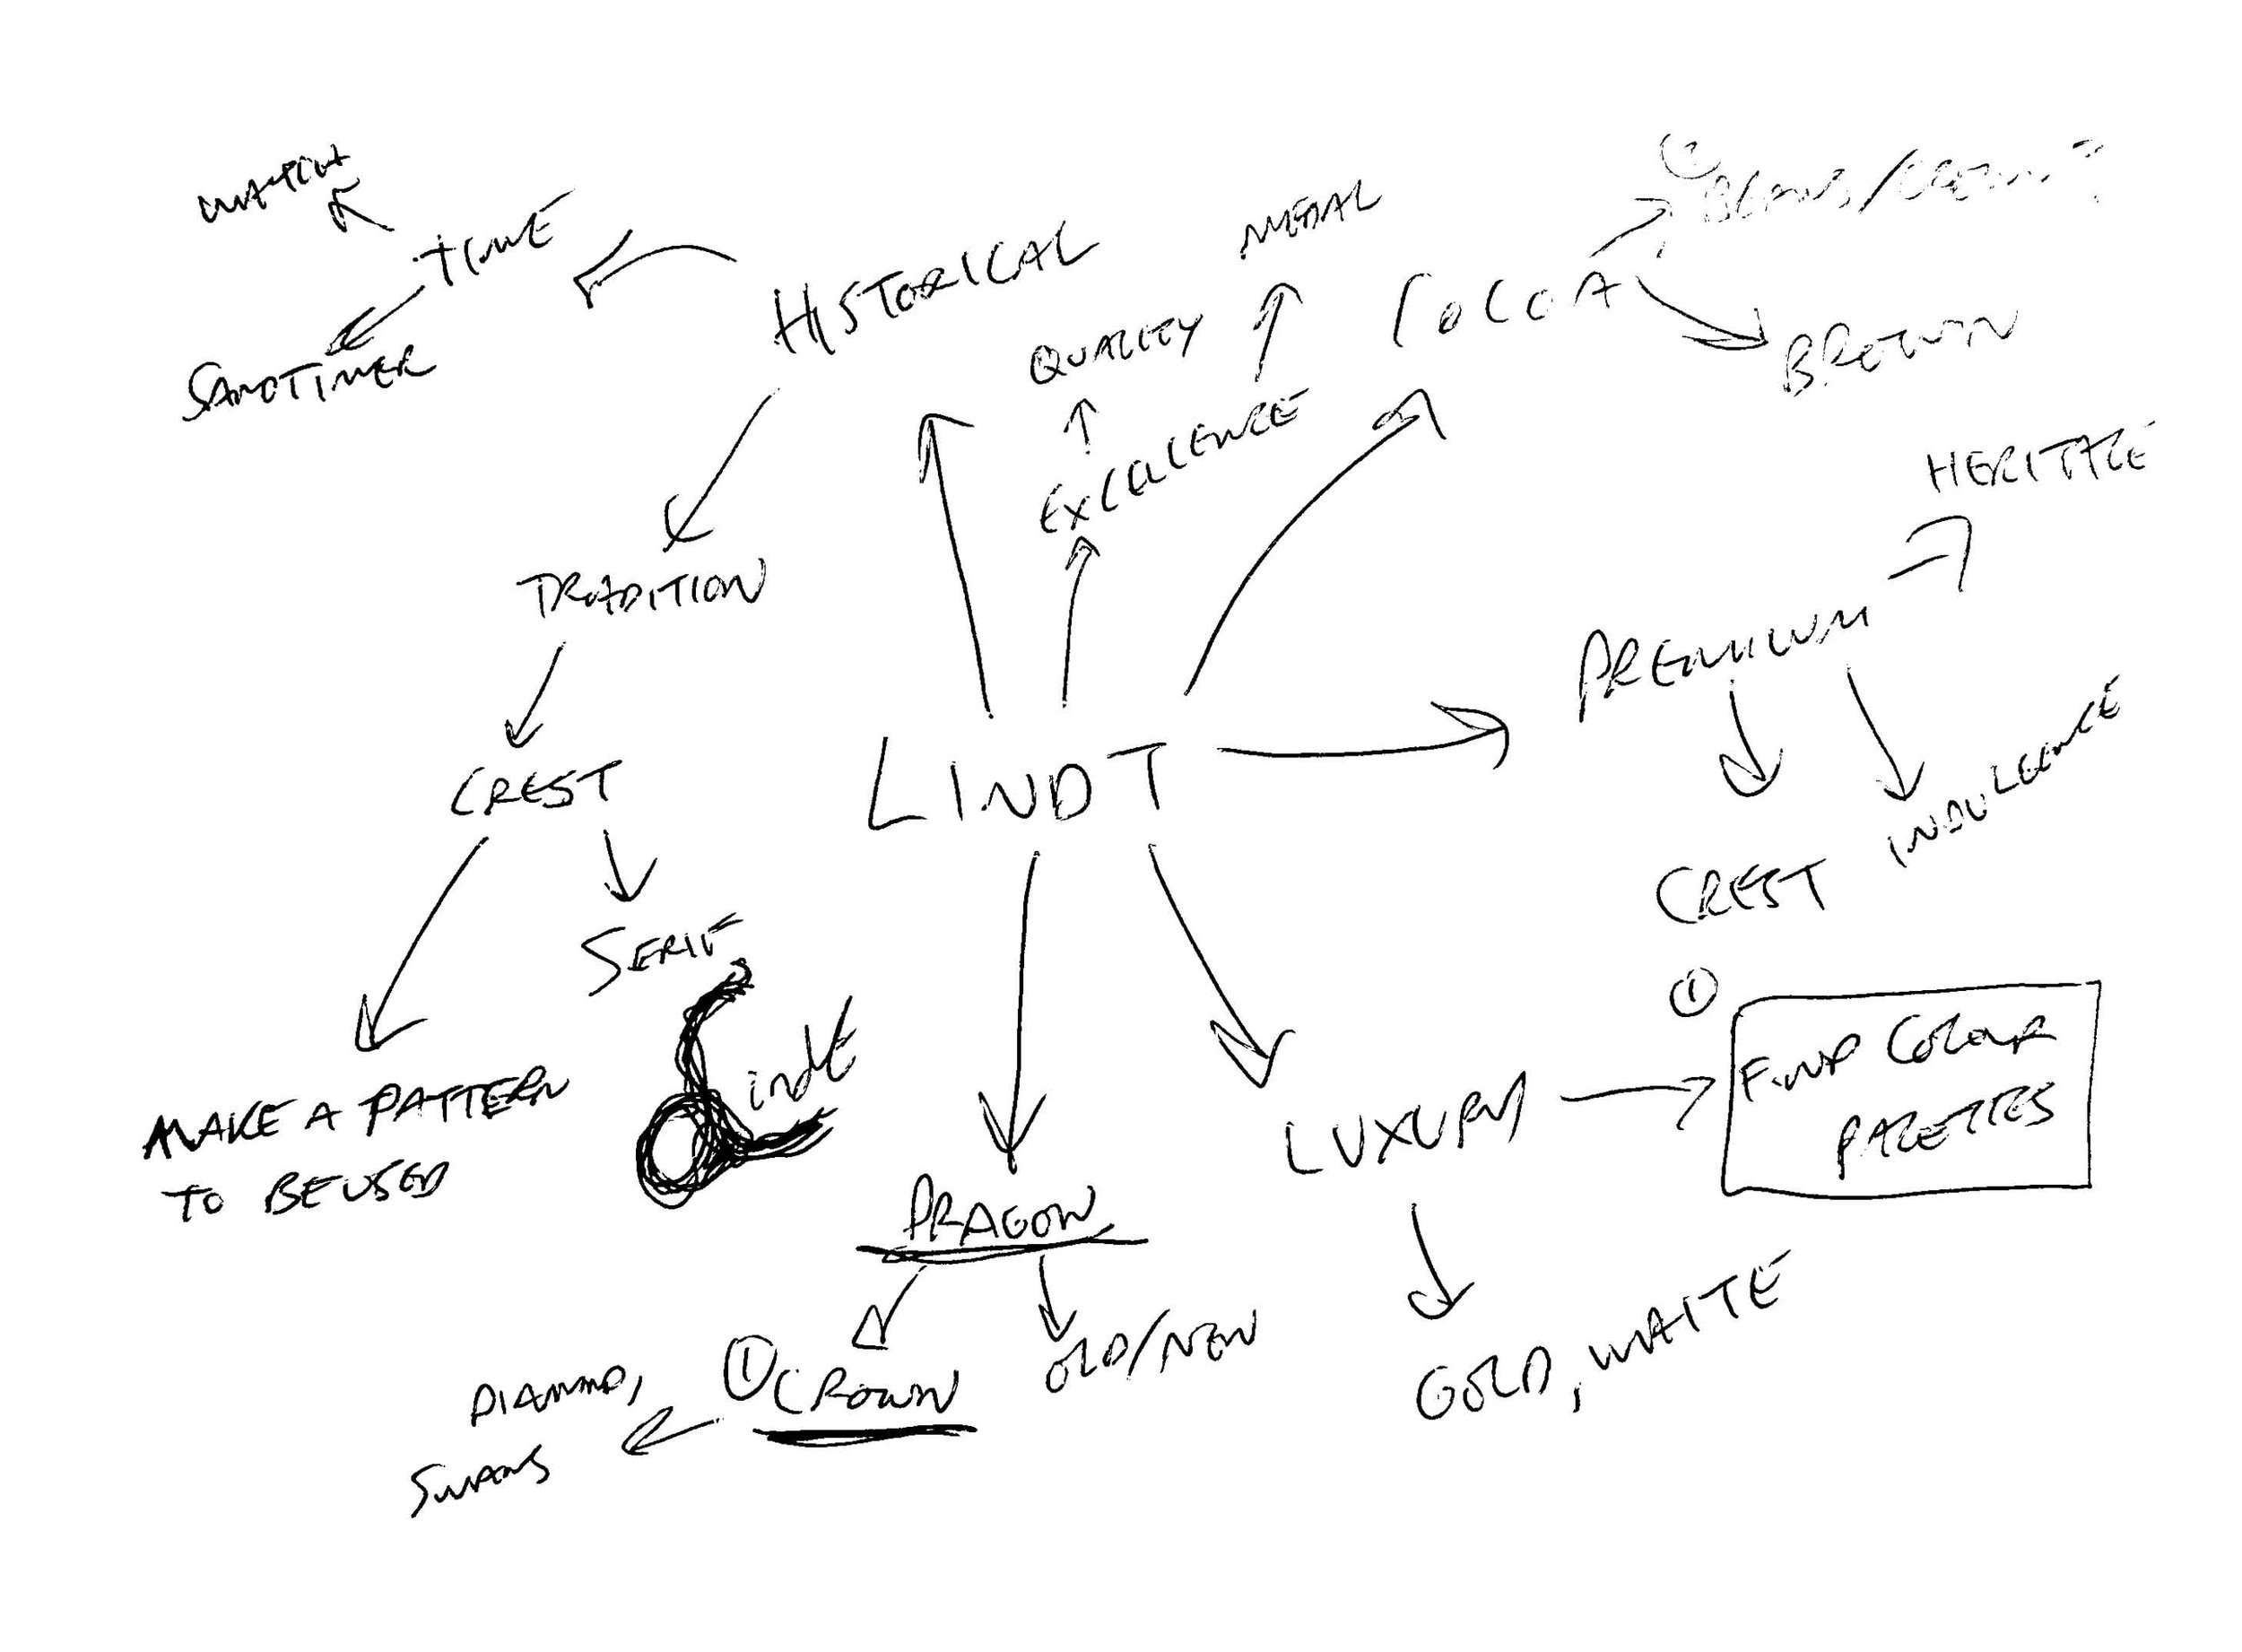 WATCH
TIME
SANDTIMER
HISTORICAL
TRADITION
CREST
SERIF
MAKE A PATTERN
TO BE USED
Lindt
QUALITY
EXCELLENCE
MEDAL
COCOA
BROWN
HERITAGE
PREMIUM
CREST
INDULGENCE
LINDT
DRAGON
① CROWN
OLD/NEW
DIAMOND,
SWANS
LUXURY
①
FIND COLOUR
PALETTES
GOLD, WHITE